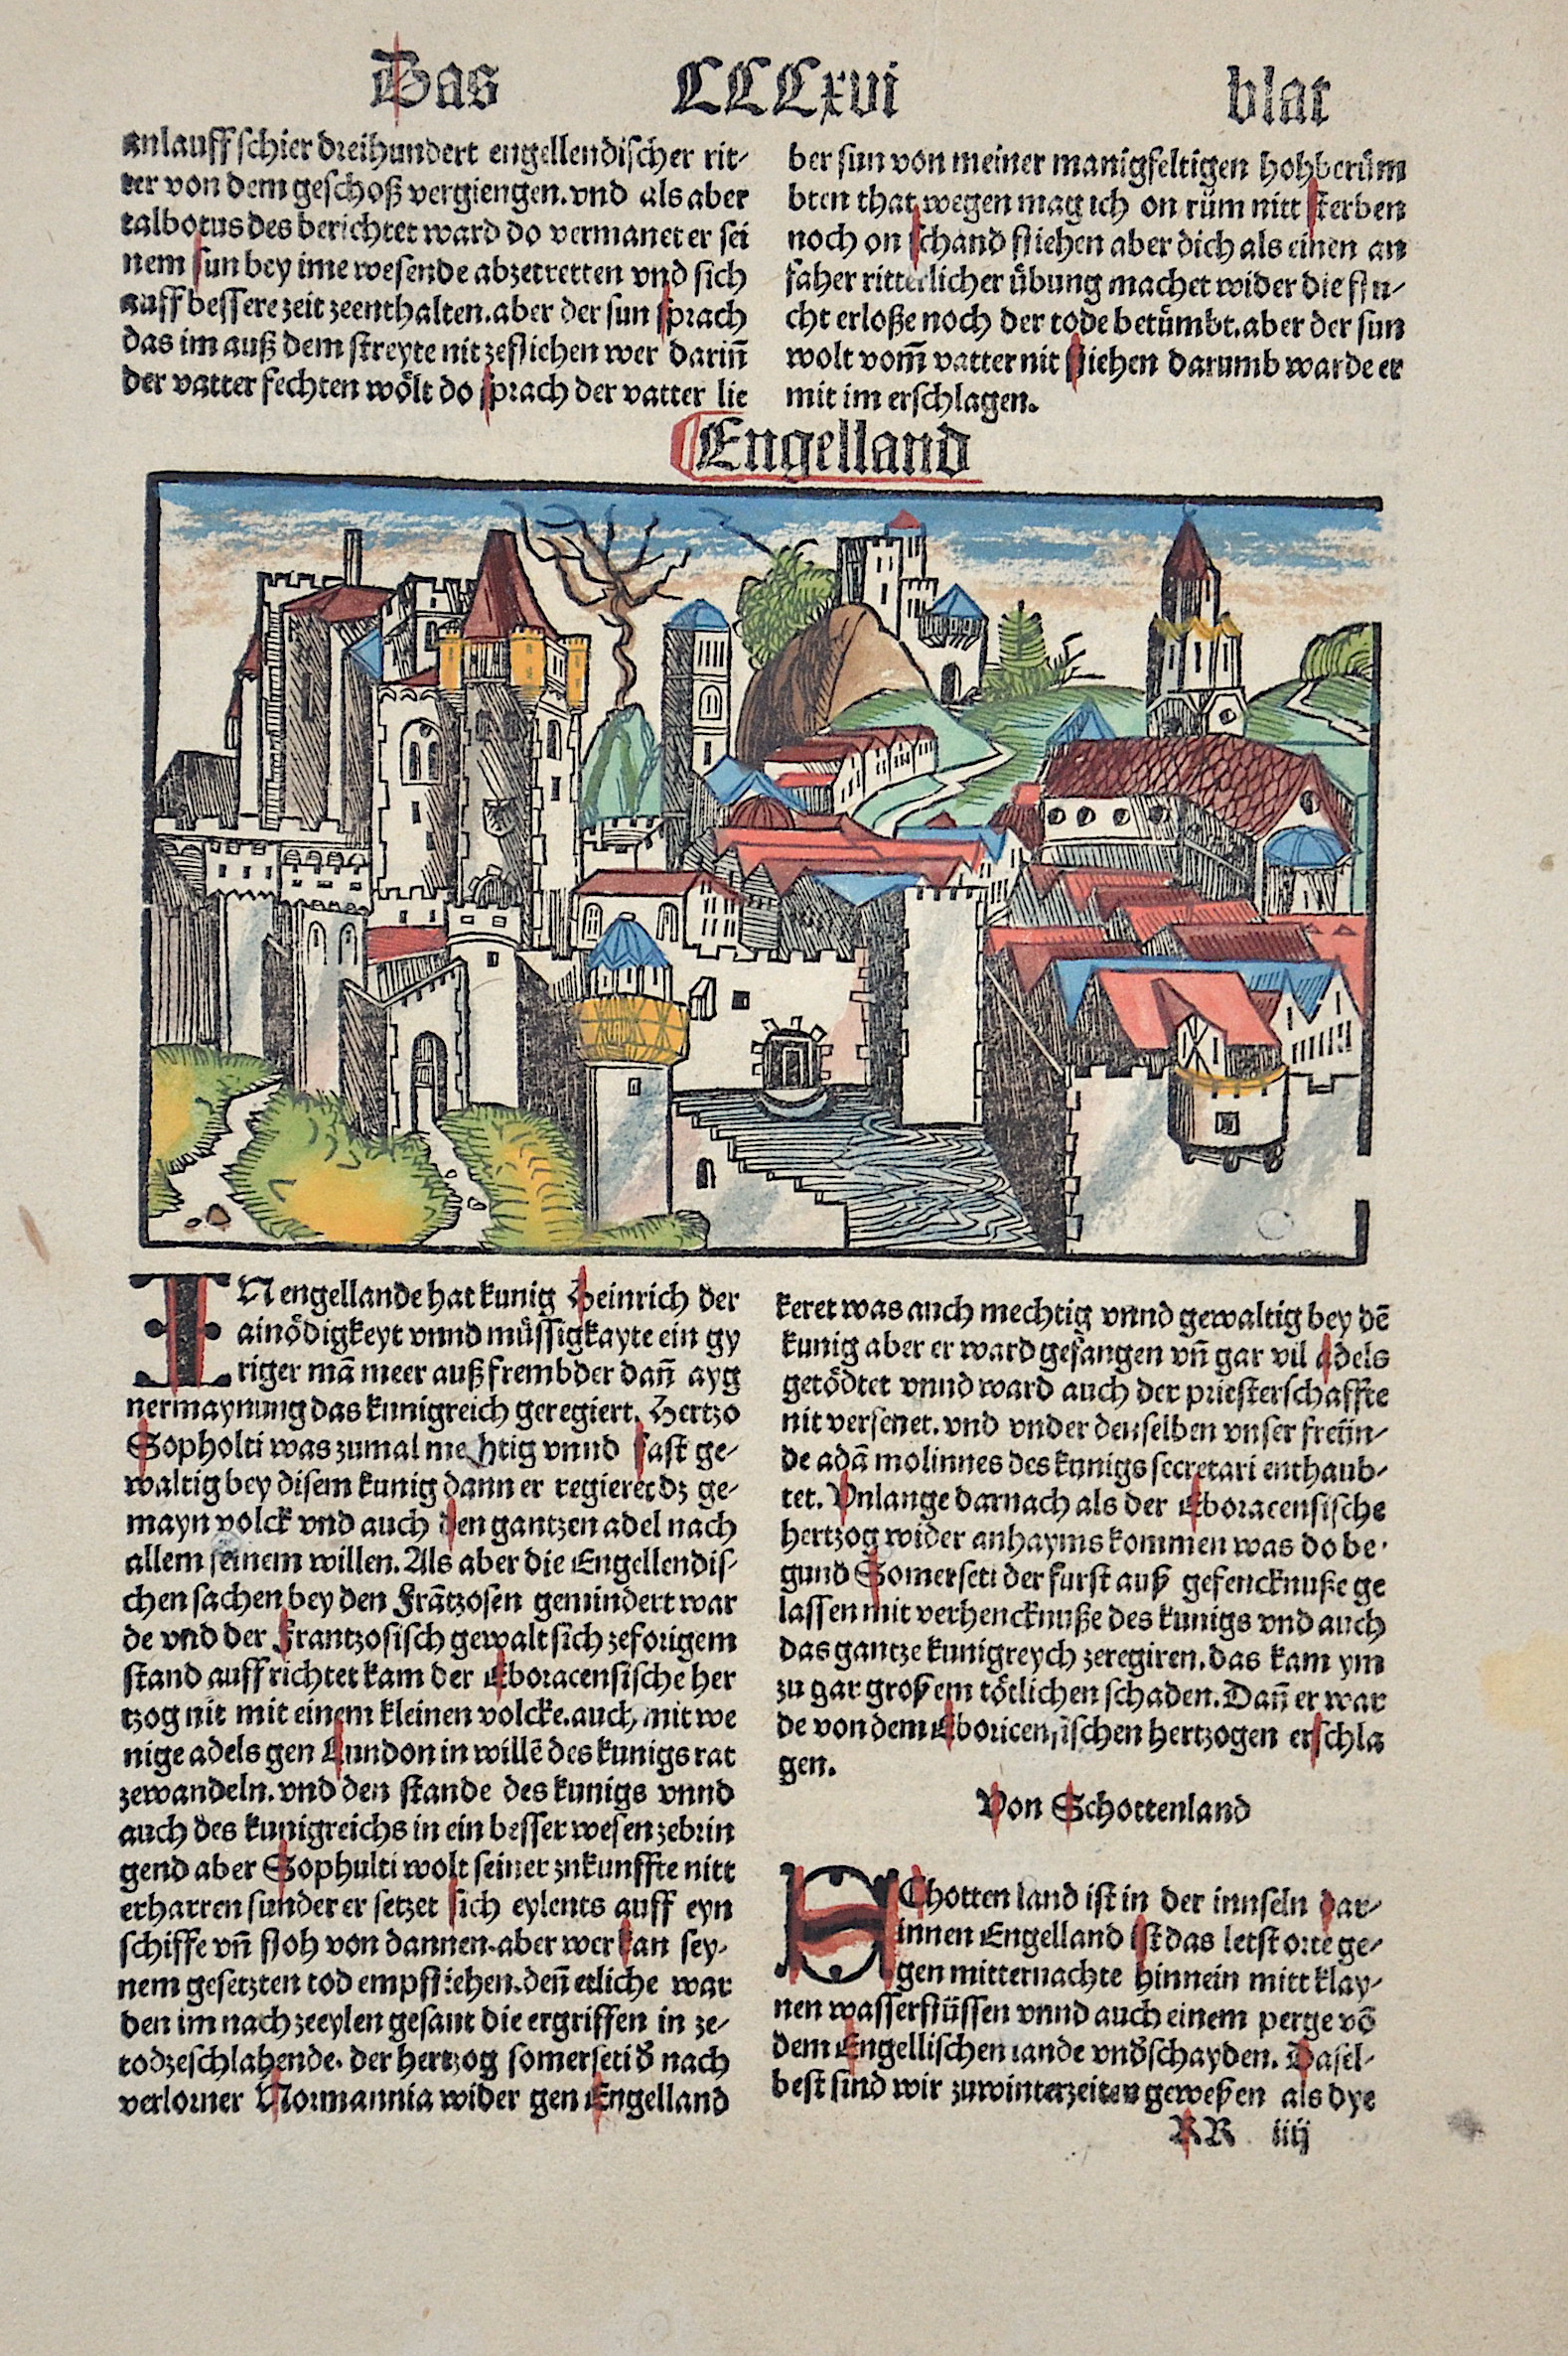 Das CCCxvi blat
anlauff schier dreihundert engellendischer rit-
ter von dem geschoß vergiengen. vnd als aber
talbotus des berichtet ward do vermanet er sei
nem sun bey ime wesende abzetretten vnd sich
auff bessere zeit zeenthalten. aber der sun sprach
das im auß dem streyte nit zefliehen wer dariñ
der vatter fechten wölt do sprach der vatter lie
ber sun von meiner manigfeltigen hohberům
bten that wegen mag ich on rům nitt sterben
noch on schand fliehen aber dich als einen an
faher ritterlicher übung machet wider die flu-
cht erloße noch der tode betůmbt. aber der sun
wolt vom̃ vatter nit fliehen darumb warde er
mit im erschlagen.
Engelland
IN engellande hat kunig Heinrich der
ainödigkeyt vnnd müssigkayte ein gy
riger mã meer auß frembder dañ ayg
ner maynung das kunigreich geregiert. Hertzo
Sopholti was zumal mechtig vnnd fast ge-
waltig bey disem kunig dann er regieret dz ge-
mayn volck vnd auch den gantzen adel nach
allem seinem willen. Als aber die Engellendis-
chen sachen bey den Frãtzosen gemindert war
de vnd der Frantzosisch gewalt sich zeforigem
stand auff richtet kam der Eboracensische her
tzog nit mit einem kleinen volcke. auch mit we
nige adels gen Lundon in willẽ des kunigs rat
zewandeln. vnd den stande des kunigs vnnd
auch des kunigreichs in ein besser wesen zebrin
gend aber Sophulti wolt seiner zukunffte nitt
erharren sunder er setzet sich eylents auff eyn
schiffe vñ floh von dannen. aber wer kan sey-
nem gesetzten tod empfliehen. deñ etliche war
den im nach zeeylen gesant die ergriffen in ze-
todzeschlahende. der hertzog somerseti d̕ nach
verlorner Normannia wider gen Engelland
keret was auch mechtig vnnd gewaltig bey dẽ
kunig aber er ward gefangen vñ gar vil adels
getödtet vnnd ward auch der priesterschaffte
nit versenet. vnd vnder denselben vnser freün-
de adã molinnes des kunigs secretari enthaub-
tet. Vnlange darnach als der Eboracensische
hertzog wider anhayms kommen was do be-
gund Somerseti der furst auß gefencknuße ge
lassen mit verhencknuße des kunigs vnd auch
das gantze kunigreych zeregiren. das kam ym
zu gar großem tötlichen schaden. Dañ er war
de von dem Eboricensischen hertzogen erschla
gen.
Von Schottenland
SChotten land ist in der innseln dar-
innen Engelland ist das letst orte ge-
gen mitternachte hinnein mitt klay-
nen wasserflüssen vnnd auch einem perge võ
dem Engellischen lande vnd̕schayden. Dasel-
best sind wir zuwinterzeiten geweßen als dye
RR iiij